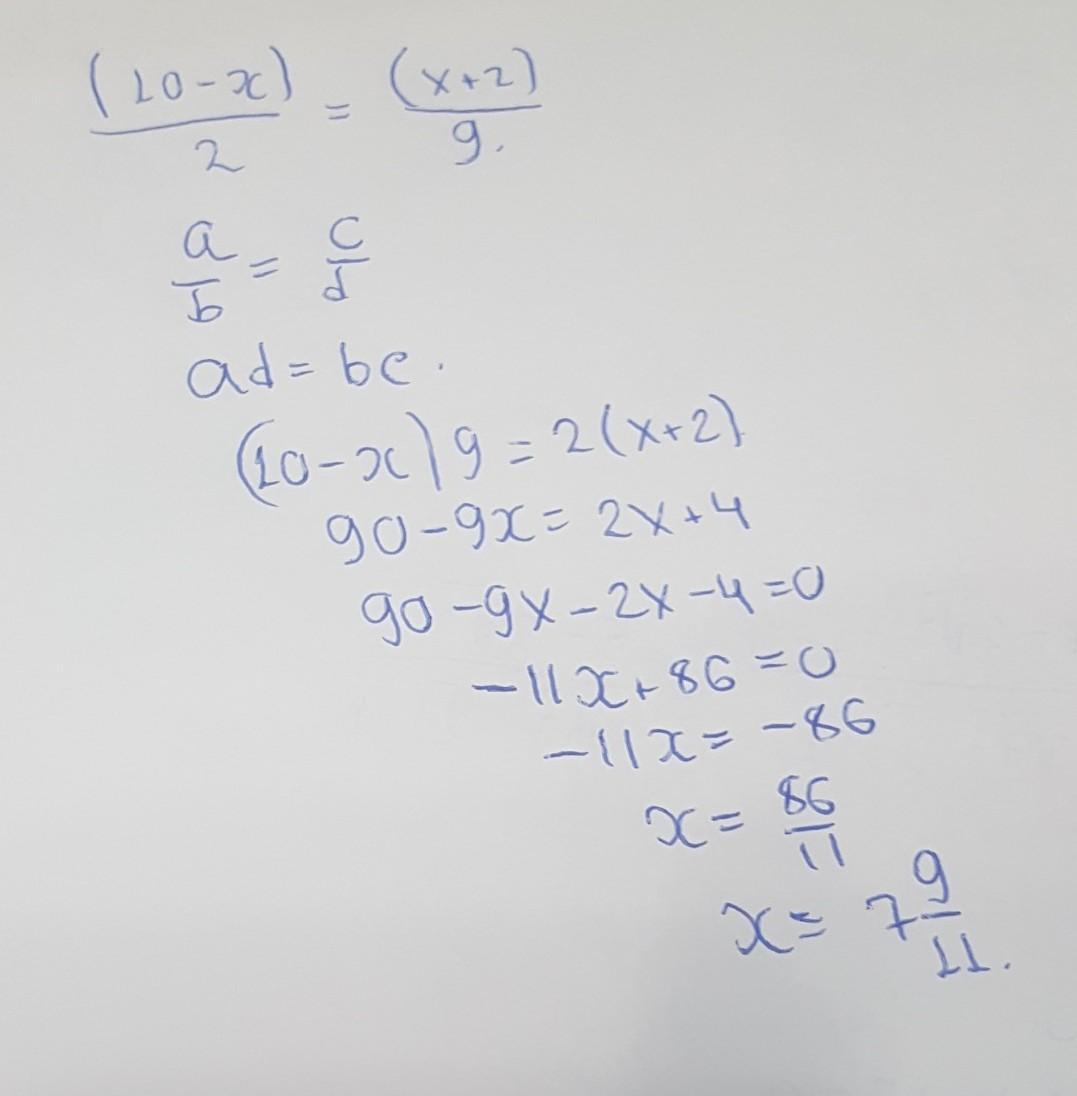 (10-x)/2 = (x+2)/9.
a/b = c/d
ad = bc.
(10-x)9 = 2(x+2)
90-9x = 2x+4
90-9x-2x-4=0
-11x+86=0
-11x = -86
x = 86/11
x = 7 9/11.